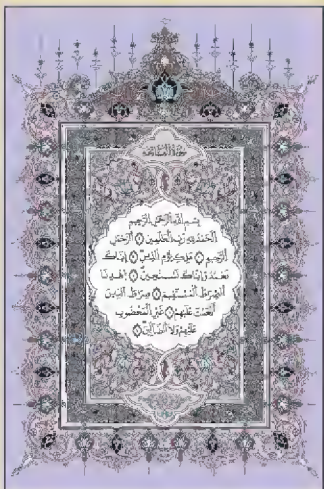 سورة الفاتحة
بسم الله الرحمن الرحيم
الحمد لله رب العلمين الرحمن
الرحيم ملك يوم الدين إياك
نعبد وإياك نستعين اهدنا
الصرط المستقيم صرط الذين
أنعمت عليهم غير المغضوب
عليهم ولا الضالين